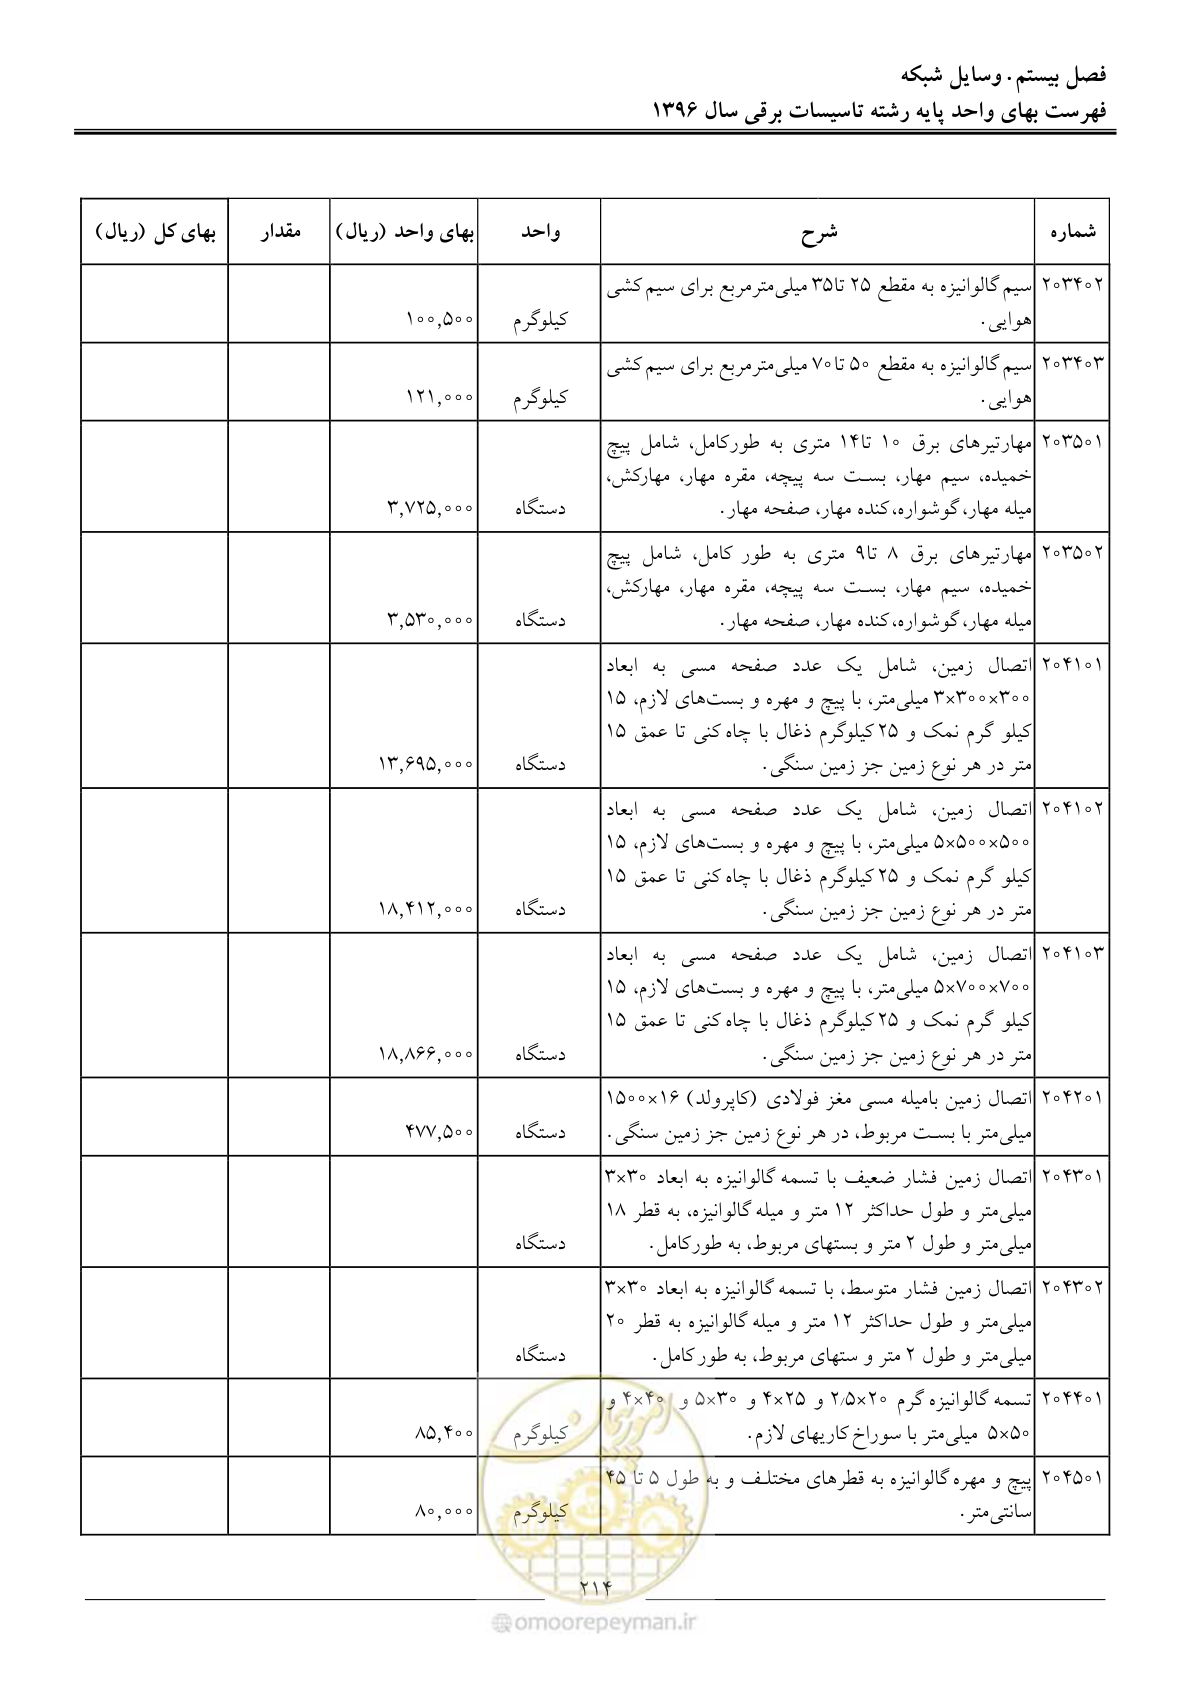 فصل بیستم. وسایل شبکه
فهرست بهای واحد پایه رشته تاسیسات برقی سال ۱۳۹۶
شماره شرح واحد بهای واحد (ریال) مقدار بهای کل (ریال)
۲۰۳۴۰۲ سیم گالوانیزه به مقطع ۲۵ تا۳۵ میلی‌مترمربع برای سیم‌کشی
هوایی. کیلوگرم ۱۰۰,۵۰۰
۲۰۳۴۰۳ سیم گالوانیزه به مقطع ۵۰ تا۷۰ میلی‌مترمربع برای سیم‌کشی
هوایی. کیلوگرم ۱۲۱,۰۰۰
۲۰۳۵۰۱ مهارتیرهای برق ۱۰ تا۱۴ متری به طورکامل، شامل پیچ
خمیده، سیم مهار، بست سه پیچه، مقره مهار، مهارکش،
میله مهار،گوشواره،کنده مهار، صفحه مهار. دستگاه ۳,۷۲۵,۰۰۰
۲۰۳۵۰۲ مهارتیرهای برق ۸ تا۹ متری به طور کامل، شامل پیچ
خمیده، سیم مهار، بست سه پیچه، مقره مهار، مهارکش،
میله مهار،گوشواره،کنده مهار، صفحه مهار. دستگاه ۳,۵۳۰,۰۰۰
۲۰۴۱۰۱ اتصال زمین، شامل یک عدد صفحه مسی به ابعاد
۳×۳۰۰×۳۰۰ میلی‌متر، با پیچ و مهره و بست‌های لازم، ۱۵
کیلو گرم نمک و ۲۵ کیلوگرم ذغال با چاه کنی تا عمق ۱۵
متر در هر نوع زمین جز زمین سنگی. دستگاه ۱۳,۶۹۵,۰۰۰
۲۰۴۱۰۲ اتصال زمین، شامل یک عدد صفحه مسی به ابعاد
۵×۵۰۰×۵۰۰ میلی‌متر، با پیچ و مهره و بست‌های لازم، ۱۵
کیلو گرم نمک و ۲۵ کیلوگرم ذغال با چاه کنی تا عمق ۱۵
متر در هر نوع زمین جز زمین سنگی. دستگاه ۱۸,۴۱۲,۰۰۰
۲۰۴۱۰۳ اتصال زمین، شامل یک عدد صفحه مسی به ابعاد
۵×۷۰۰×۷۰۰ میلی‌متر، با پیچ و مهره و بست‌های لازم، ۱۵
کیلو گرم نمک و ۲۵ کیلوگرم ذغال با چاه کنی تا عمق ۱۵
متر در هر نوع زمین جز زمین سنگی. دستگاه ۱۸,۸۶۶,۰۰۰
۲۰۴۲۰۱ اتصال زمین بامیله مسی مغز فولادی (کاپرولد) ۱۶×۱۵۰۰
میلی‌متر با بست مربوط، در هر نوع زمین جز زمین سنگی. دستگاه ۴۷۷,۵۰۰
۲۰۴۳۰۱ اتصال زمین فشار ضعیف با تسمه گالوانیزه به ابعاد ۳۰×۳
میلی‌متر و طول حداکثر ۱۲ متر و میله گالوانیزه، به قطر ۱۸
میلی‌متر و طول ۲ متر و بستهای مربوط، به طورکامل. دستگاه
۲۰۴۳۰۲ اتصال زمین فشار متوسط، با تسمه گالوانیزه به ابعاد ۳۰×۳
میلی‌متر و طول حداکثر ۱۲ متر و میله گالوانیزه به قطر ۲۰
میلی‌متر و طول ۲ متر و ستهای مربوط، به طور کامل. دستگاه
۲۰۴۴۰۱ تسمه گالوانیزه گرم ۲۰×۲/۵ و ۲۵×۴ و ۳۰×۵ و ۴۰×۴ و
۵۰×۵ میلی‌متر با سوراخ کاریهای لازم. کیلوگرم ۸۵,۴۰۰
۲۰۴۵۰۱ پیچ و مهره گالوانیزه به قطرهای مختلف و به طول ۵ تا ۴۵
سانتی‌متر. کیلوگرم ۸۰,۰۰۰
امورپیمان
۲۱۴
omoorepeyman.ir